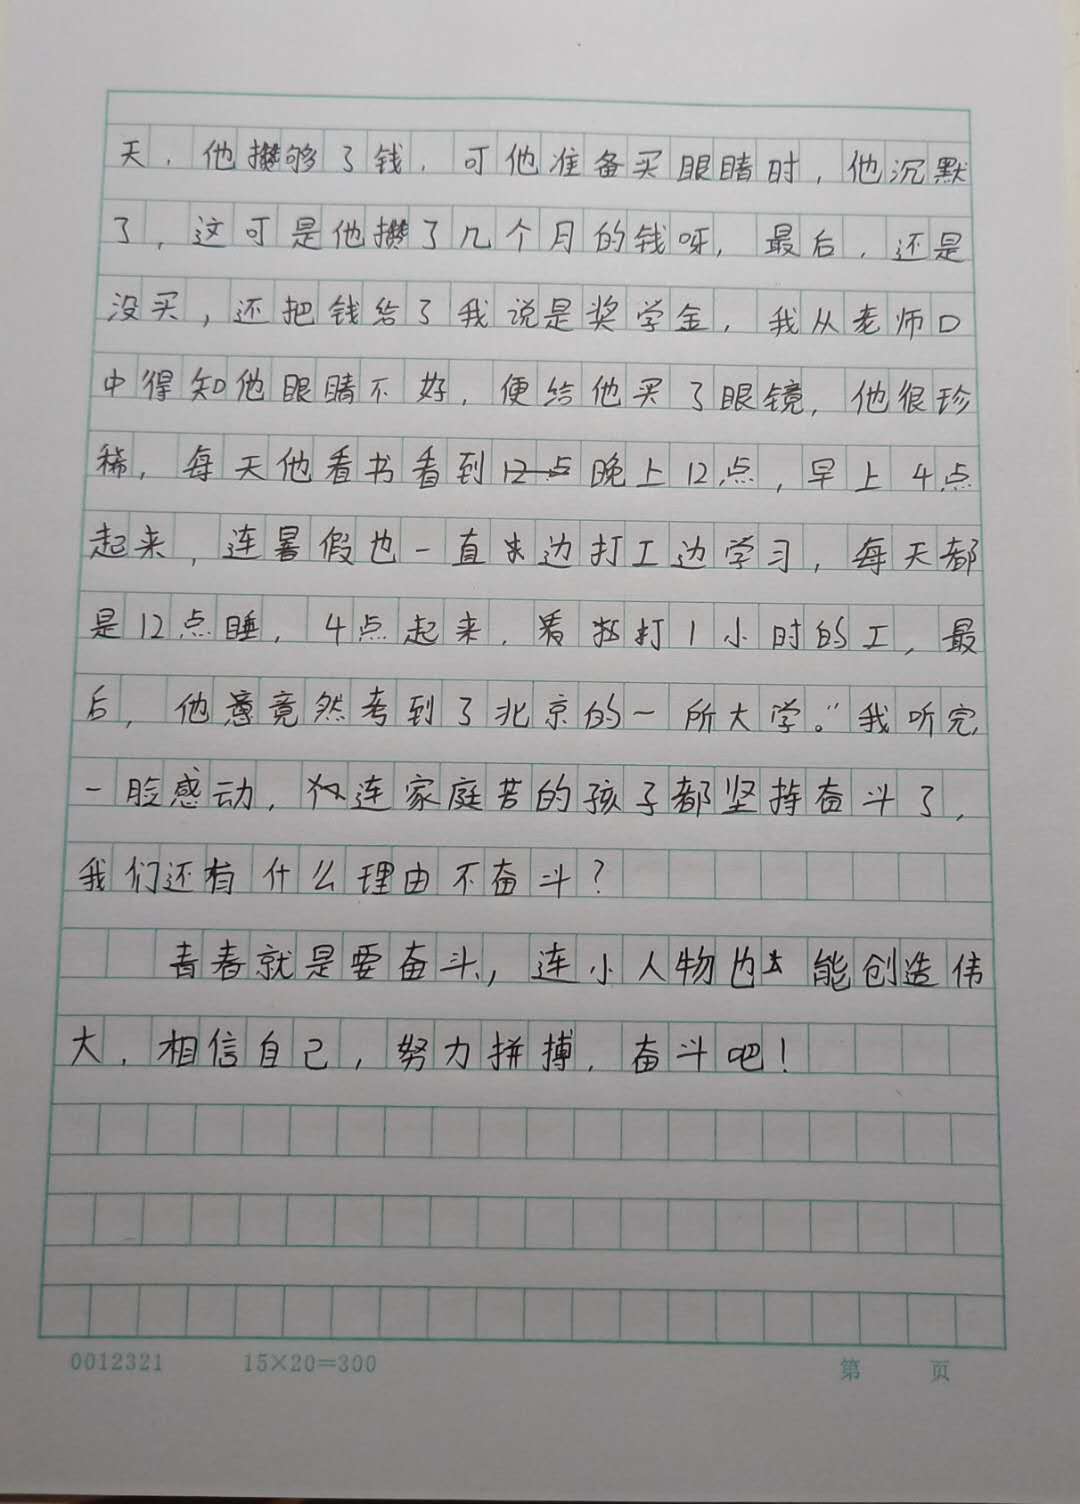 天，他攒够了钱，可他准备买眼睛时，他沉默
了，这可是他攒了几个月的钱呀，最后，还是
没买，还把钱给了我说是奖学金，我从老师口
中得知他眼睛不好，便给他买了眼镜，他很珍
稀，每天他看书看到12点晚上12点，早上4点
起来，连暑假也一直边打工边学习，每天都
是12点睡，4点起来，打1小时的工，最
后，他竟然考到了北京的一所大学。”我听完
一脸感动，连家庭苦的孩子都坚持奋斗了，
我们还有什么理由不奋斗？
青春就是要奋斗，连小人物也能创造伟
大，相信自己，努力拼搏，奋斗吧！
0012321 15×20=300 第 页